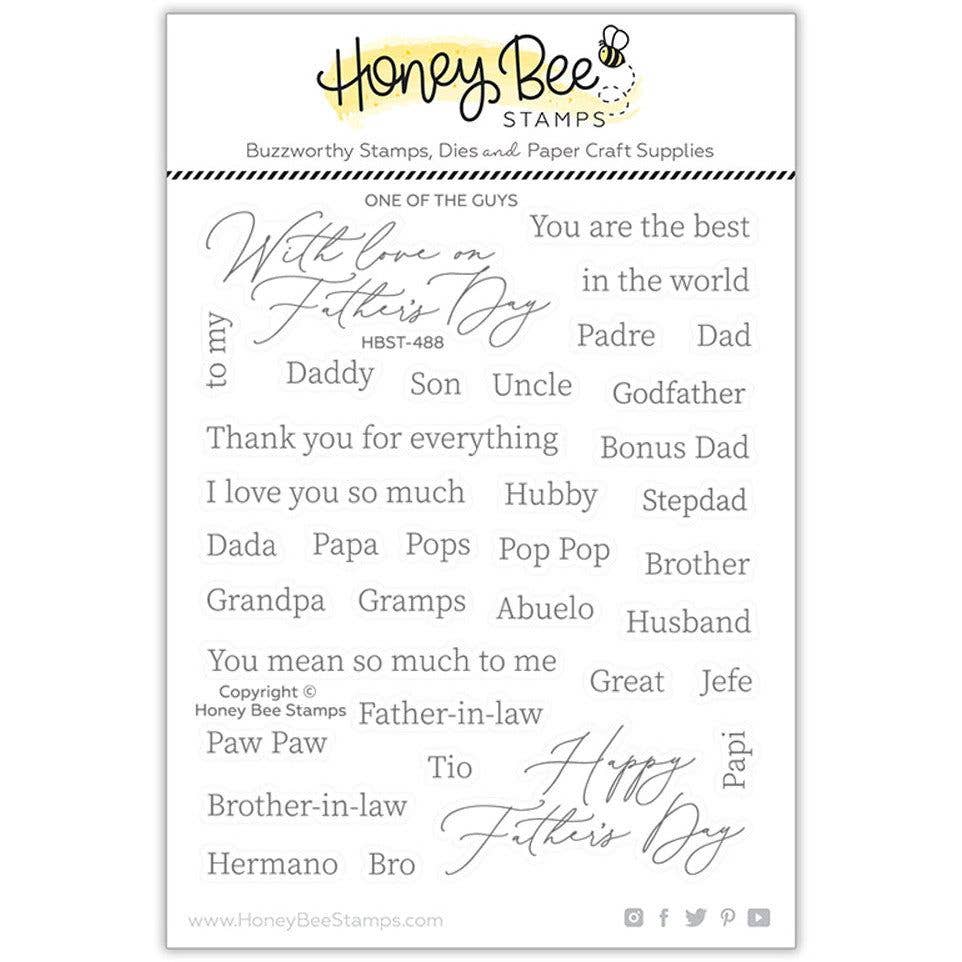 Honey Bee
STAMPS
Buzzworthy Stamps, Dies and Paper Craft Supplies
ONE OF THE GUYS
With love on
Father's Day
HBST-488
to my
You are the best
in the world
Padre Dad
Daddy Son Uncle Godfather
Thank you for everything Bonus Dad
I love you so much Hubby Stepdad
Dada Papa Pops Pop Pop Brother
Grandpa Gramps Abuelo Husband
You mean so much to me Great Jefe
Copyright ©
Honey Bee Stamps
Father-in-law
Paw Paw
Tio
Papi
Happy
Father's Day
Brother-in-law
Hermano Bro
www.HoneyBeeStamps.com